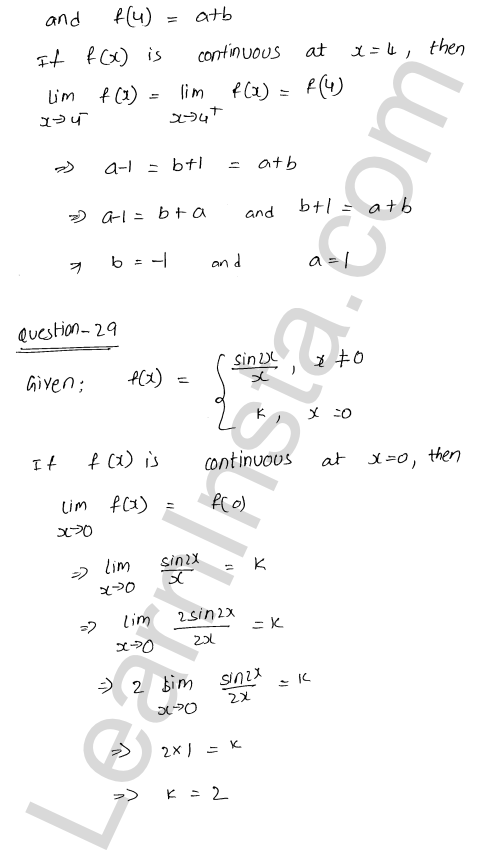 and f(4) = a+b
If f(x) is continuous at x=4, then
lim x→4⁻ f(x) = lim x→4⁺ f(x) = f(4)
⇒ a-1 = b+1 = a+b
⇒ a-1 = b+a and b+1 = a+b
⇒ b = -1 and a=1
Question-29
Given: f(x) = { sin2x/x, x ≠0
k, x =0
If f(x) is continuous at x=0, then
lim x→0 f(x) = f(0)
⇒ lim x→0 sin2x/x = k
⇒ lim x→0 2sin2x/2x = k
⇒ 2 lim x→0 sin2x/2x = k
⇒ 2x1 = k
⇒ k = 2
LearnInsta.com